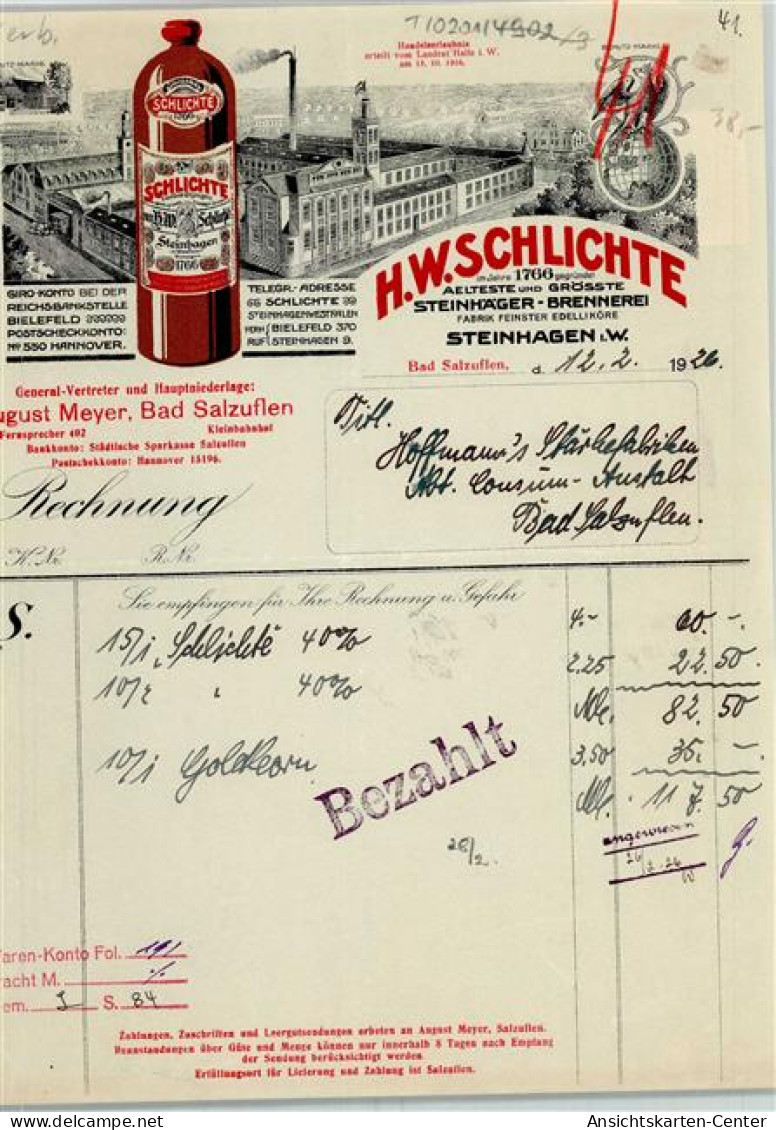 41.
Handelserlaubnis
erteilt vom Landrat Halle i. W.
38,-
SCHLICHTE
1766
SCHLICHTE
H.W. Schlichte
Steinhagen
1766
H.W. SCHLICHTE
im Jahre 1766 gegründet
AELTESTE UND GRÖSSTE
STEINHÄGER-BRENNEREI
FABRIK FEINSTER EDELLIKÖRE
STEINHAGEN i.W.
GIRO-KONTO BEI DER
REICHSBANKSTELLE
BIELEFELD
POSTSCHECKKONTO:
No 550 HANNOVER.
TELEGR.-ADRESSE
SCHLICHTE
STEINHAGENWESTFALEN
FERN RUF BIELEFELD 370
STEINHAGEN 9.
Bad Salzuflen, d. 12. 2. 1926.
General-Vertreter und Hauptniederlage:
ugust Meyer, Bad Salzuflen
Fernsprecher 402 Kleinbahnhof
Bankkonto: Städtische Sparkasse Salzuflen
Postschekkonto: Hannover 15196.
Titl.
Hoffmann's Stärkefabriken
Abt. Consum-Anstalt
Bad Salzuflen.
Rechnung
K. Nr. R. Nr.
Sie empfingen für Ihre Rechnung u. Gefahr
S.
15/1 "Schlichte 40% 4.- 60.-
10/2 " 40% 2.25 22.50
M. 82.50
10/1 Goldkorn 3.50 35.-
M. 117.50
Bezahlt
angewiesen
26/2.26
28/2.
aren-Konto Fol. 191
acht M. %
em. J S. 84
Zahlungen, Zuschriften und Leergutsendungen erbeten an August Meyer, Salzuflen.
Beanstandungen über Güte und Menge können nur innerhalb 8 Tagen nach Empfang
der Sendung berücksichtigt werden
Erfüllungsort für Lieferung und Zahlung ist Salzuflen.
Ansichtskarten-Center